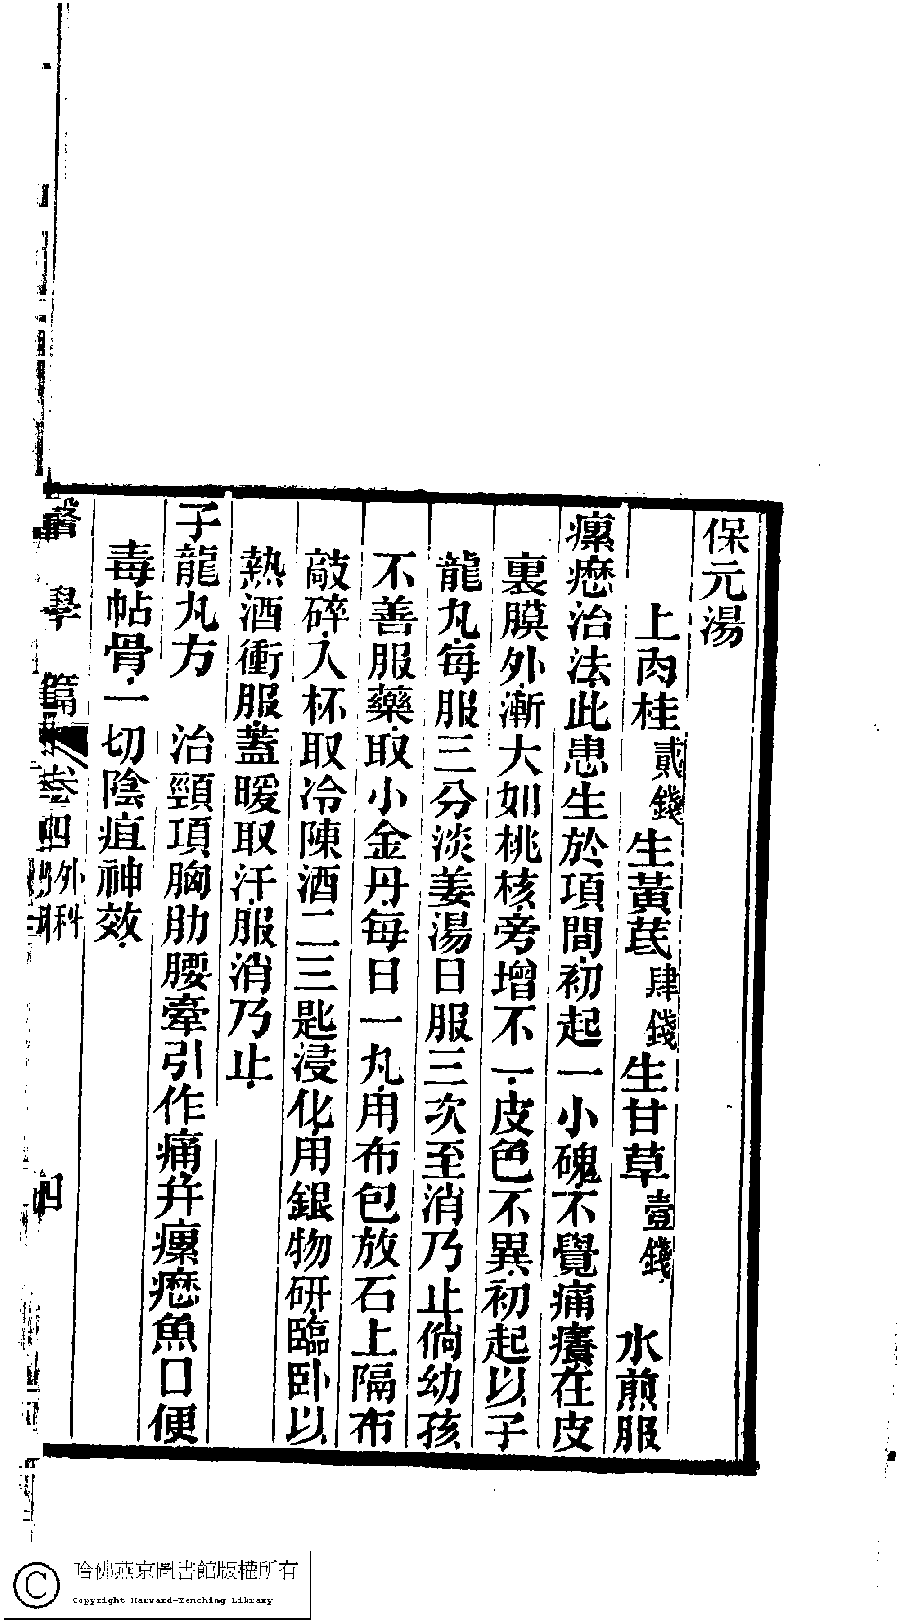 保元湯
上肉桂貳錢生黃芪肆錢生甘草壹錢 水煎服
瘰癧治法此患生於項間初起一小磈不覺痛癢在皮
裏膜外漸大如桃核旁增不一皮色不異初起以子
龍丸每服三分淡姜湯日服三次至消乃止倘幼孩
不善服藥取小金丹每日一丸用布包放石上隔布
敲碎入杯取冷陳酒二三匙浸化用銀物研臨卧以
熱酒衝服蓋暖取汗服消乃止
子龍丸方 治頸項胸肋腰牽引作痛幷瘰癧魚口便
毒帖骨一切陰疽神效
醫學篇
卷四外科
四
哈佛燕京圖書館版權所有
Copyright Harvard-Yenching Library